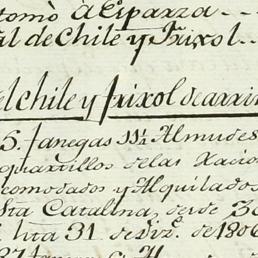 tomò à Esparza
al de Chile y Frixol
el chile y frixol de arri
5. fanegas 11½ Almudes
quartillos de las Racio
comodados y Alquilados
Sta Catalina, desde 30
hta 31. de Dize. de 1806